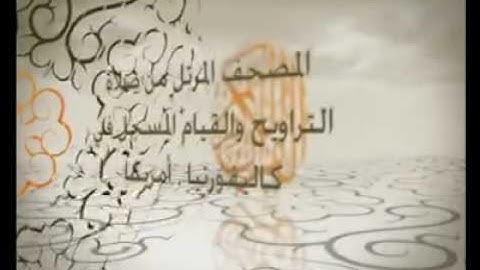 المصحف المرتل من صلاة
التراويح والقيام المسجل في
كاليفورنيا. أمريكا